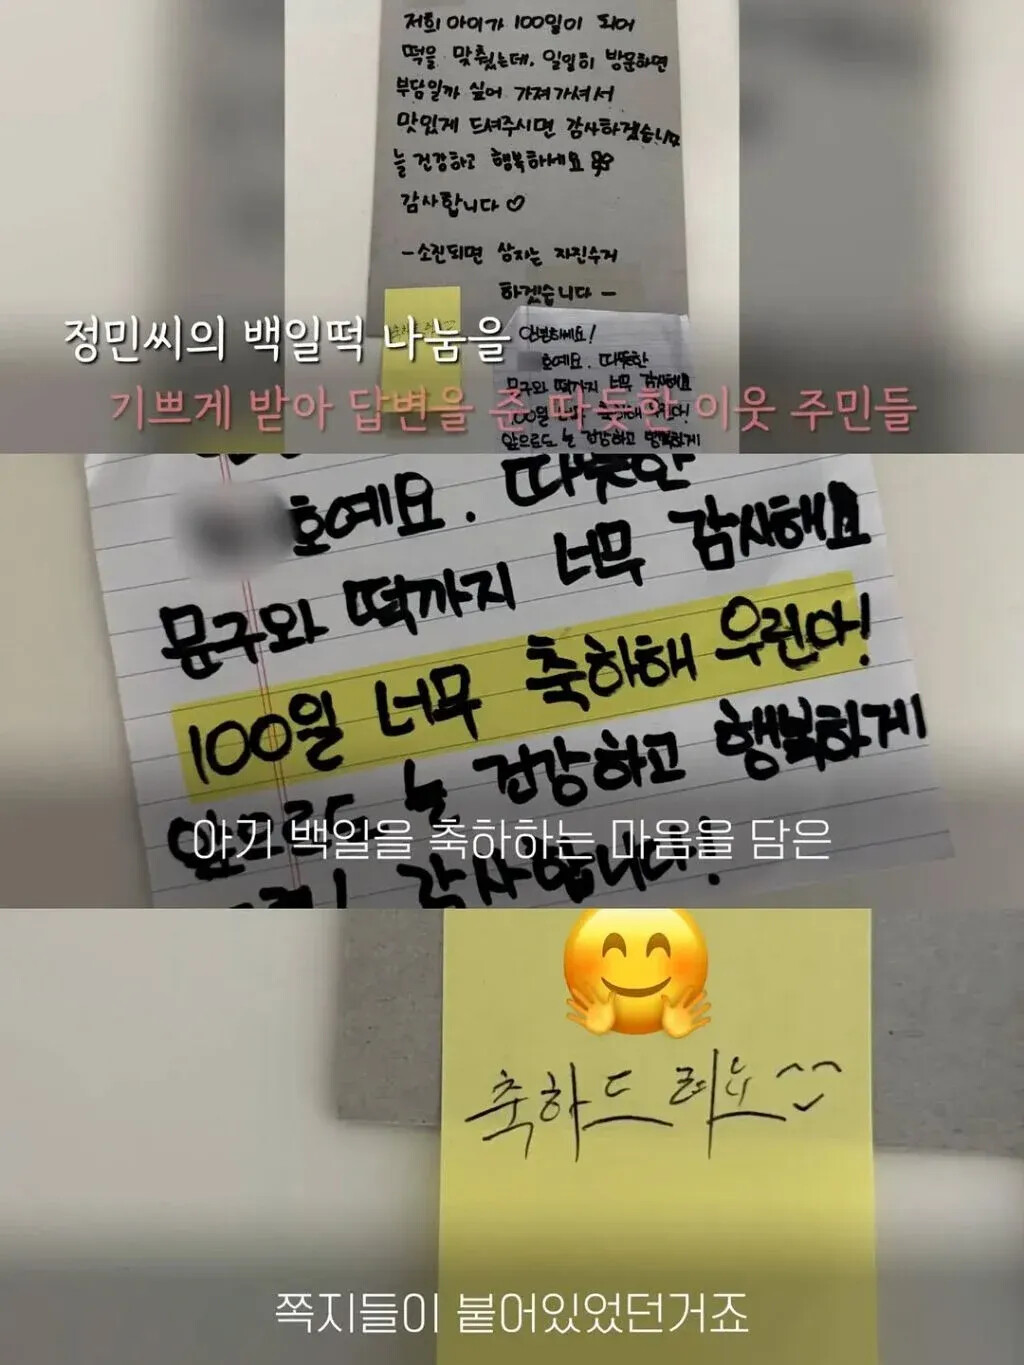 저희 아이가 100일이 되어
떡을 맞췄는데, 일일히 방문하면
부담일까 싶어 가져가셔서
맛있게 드셔주시면 감사하겠습니다
늘 건강하고 행복하세요
감사합니다 ♡
-소진되면 상자는 자진수거
하겠습니다-
축하드려요
안녕하세요!
호예요. 따뜻한
문구와 떡까지 너무 감사해요
100일 너무 축하해 우린아!
앞으로도 늘 건강하고 행복하게
정민씨의 백일떡 나눔을
기쁘게 받아 답변을 준 따듯한 이웃 주민들
호예요. 따뜻한
문구와 떡까지 너무 감사해요
100일 너무 축하해 우린아!
앞으로도 늘 건강하고 행복하게
감사합니다!
아기 백일을 축하하는 마음을 담은
축하드려요
쪽지들이 붙어있었던거죠